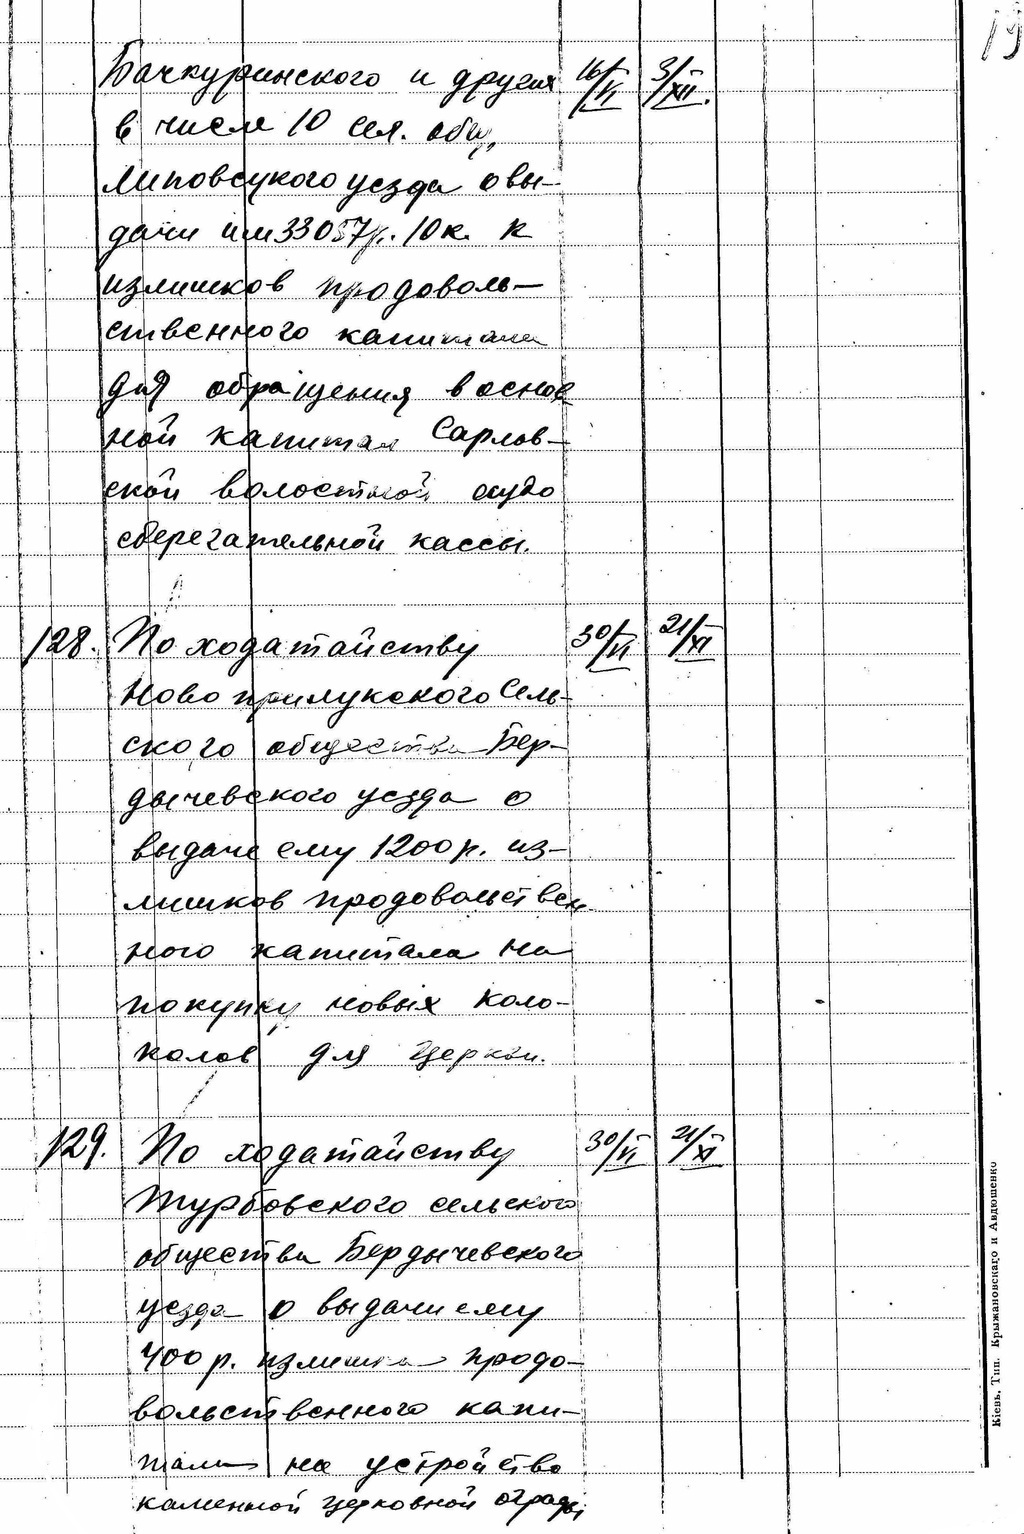 19
Бачкуринского и других 16/VI 3/XII.
в числе 10 сел. общ.
Липовецкого уезда о вы-
дачи им 33057р. 10к. к
излишков продоволь-
ственного капитала
для обращения в основ
ной капитал Сарлов-
ской волостной ссудо
сберегательной кассы.
128. По ходатайству 30/VI 21/XI
Новоприлукского Сель-
ского общества Бер-
дычевского уезда о
выдаче ему 1200р. из-
лишков продовольствен
ного капитала на
покупку новых коло-
колов для церкви.
129. По ходатайству 30/VI 21/XI
Турбовского сельского
общества Бердычевского
уезда о выдачи ему
400р. излишка продо-
вольственного капи-
тала на устройство
каменной церковной ограды
Кіевъ, Тип. Крыжановскаго и Авдюшенко